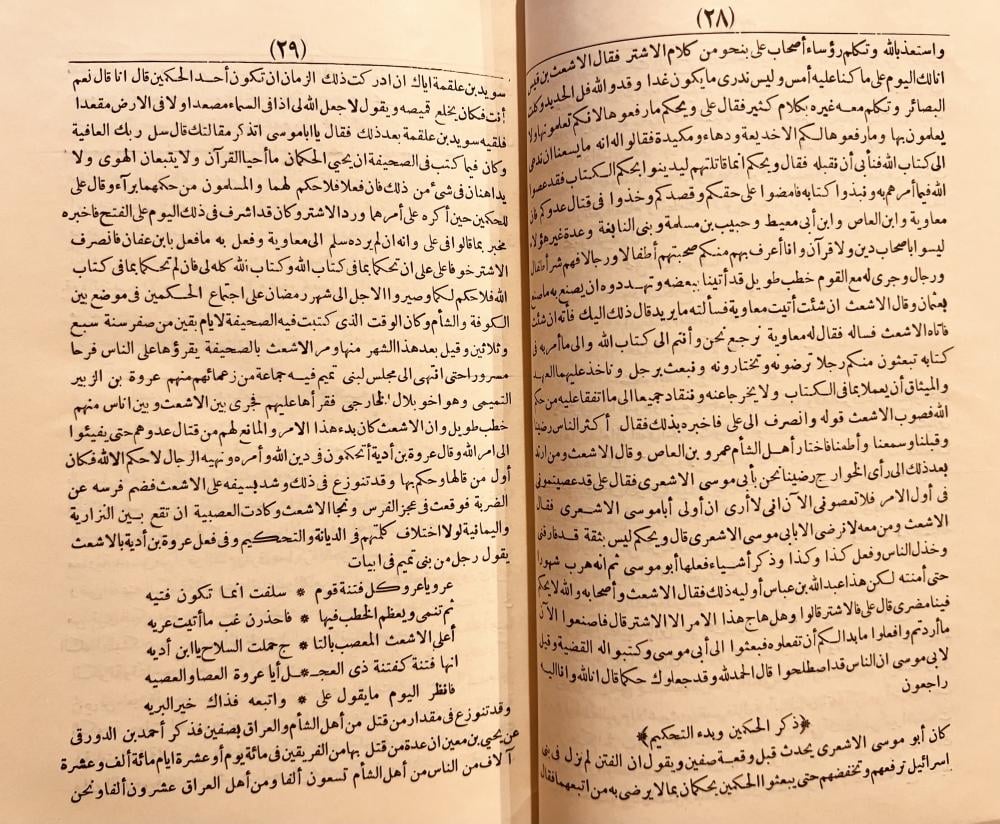 (٢٨)
واستعذ بالله وتكلم رؤساء أصحاب على بنحو من كلام الاشتر فقال الاشعث بن قيس
انالك اليوم على ما كنا عليه أمس وليس ندرى ما يكون غدا وقد والله فل الحديد وكلت
البصائر وتكلم معه غيره بكلام كثير فقال على ويحكم مارفعوها لانكم تعلمونها ولا
يعلمون بها ومارفعوها لكم الاخديعة ودهاء ومكيدة فقالواله انه ما يسعنا ان ندعى
الى كتاب الله فنأبى أن نقبله فقال ويحكم انما قاتلتهم ليدينوا بحكم الكتاب فقد عصوا
الله فيما أمرهم به ونبذوا كتابه فامضوا على حقكم وقصدكم وخذوا فى قتال عدوكم فان
معاوية وابن العاص وابن أبى معيط وحبيب بن مسلمة وبنى النابغة وعدة غير هؤلاء
ليسوا باصحاب دين ولا قرآن وانا أعرف بهم منكم صحبتهم أطفالا ورجالا فهم شر أطفال
ورجال وجرى له مع القوم خطب طويل قد أتينا ببعضه وتهددوه ان يصنع به ما صنع
بعثمان وقال الاشعث ان شئت أتيت معاوية فسألته ما يريد قال ذلك اليك فأته ان شئت
فاتاه الاشعث فساله فقال له معاوية نرجع نحن وأنتم الى كتاب الله والى ما أمر به فى
كتابه تبعثون منكم رجلا ترضونه وتختارونه ونبعث برجل وناخذ عليهما العهد
والميثاق أن يعملا بما فى الكتاب ولا يخرجا عنه وننقاد جميعا الى ما اتفقا عليه من حكم
الله فصوب الاشعث قوله وانصرف الى على فاخبره بذلك فقال أكثر الناس رضينا
وقبلنا وسمعنا وأطعنا فاختار أهل الشأم عمرو بن العاص وقال الاشعث ومن ارتد
بعد ذلك الى رأى الخوارج رضينا نحن بأبى موسى الاشعرى فقال على قد عصيتمونى
فى أول الامر فلا تعصونى الآن انى لا أرى ان أولى أبا موسى الاشعرى فقال
الاشعث ومن معه لا نرضى الا بابى موسى الاشعرى قال ويحكم ليس بثقة قد فارقنى
وخذل الناس وفعل كذا وكذا وذكر أشياء فعلها أبو موسى ثم انه هرب شهورا
حتى أمنته لكن هذا عبد الله بن عباس أوليه ذلك فقال الاشعث وأصحابه والله لا يحكم
فينا مضرى قال على فالاشتر قالوا وهل هاج هذا الامر الا الاشتر قال فاصنعوا الآن
ما أردتم وافعلوا ما بدالكم أن تفعلوه فبعثوا الى أبى موسى وكتبوا له القضية وقيل
لابى موسى ان الناس قد اصطلحوا قال الحمد لله وقد جعلوك حكما قال انا لله وانا اليه
راجعون
﴿ذكر الحكمين وبدء التحكيم﴾
كان أبو موسى الاشعرى يحدث قبل وقعة صفين ويقول ان الفتن لم تزل فى بنى
اسرائيل ترفعهم وتخفضهم حتى يبعثوا الحكمين يحكمان بما لا يرضى به من اتبعهما فقال
(٢٩)
سويد بن علقمة اياك ان ادركت ذلك الزمان ان تكون أحد الحكمين قال انا قال نعم
أنت فكان يخلع قميصه ويقول لا جعل الله لى اذا فى السماء مصعدا ولا فى الارض مقعدا
فلقيه سويد بن علقمة بعد ذلك فقال يا ابا موسى اتذكر مقالتك قال سل ربك العافية
وكان فيما كتب فى الصحيفة ان يحيى الحكمان ما أحيا القرآن ولا يتبعان الهوى ولا
يداهنان فى شئ من ذلك فان فعلا فلا حكم لهما والمسلمون من حكمهما برآء وقال على
للحكمين حين أكره على أمرهما وردا الاشتر وكان قد اشرف فى ذلك اليوم على الفتح فاخبره
مخبر بما قالوا فى على وانه ان لم يرده سلم الى معاوية وفعل به ما فعل بابن عفان فانصرف
الاشتر خوفا على على ان تحكما بما فى كتاب الله وكتاب الله كله لى فان لم تحكما بما فى كتاب
الله فلا حكم لكما وصيروا الاجل الى شهر رمضان على اجتماع الحكمين فى موضع بين
الكوفة والشأم وكان الوقت الذى كتبت فيه الصحيفة لايام بقين من صفر سنة سبع
وثلاثين وقيل بعد هذا الشهر منها ومر الاشعث بالصحيفة يقرؤها على الناس فرحا
مسرورا حتى انتهى الى مجلس لبنى تميم فيه جماعة من زعمائهم منهم عروة بن الزبير
التميمى وهو اخو بلال الخارجى فقرأها عليهم فجرى بين الاشعث وبين اناس منهم
خطب طويل وان الاشعث كان بدء هذا الامر والمانع لهم من قتال عدوهم حتى يفيئوا
الى امر الله وقال عروة بن أدية أتحكمون فى دين الله وأمره ونهيه الرجال لا حكم الا لله فكان
أول من قالها وحكم بها وقد تنوزع فى ذلك وشد بسيفه على الاشعث فضم فرسه عن
الضربة فوقعت فى عجز الفرس ونجا الاشعث وكادت العصبية ان تقع بين النزارية
واليمانية لولا اختلاف كلمتهم فى الديانة والتحكيم وفى فعل عروة بن أدية بالاشعث
يقول رجل من بنى تميم فى ابيات
عرو يا عرو كل فتنة قوم * سلفت انما تكون فتيه
ثم تنمى ويعظم الخطب فيها * فاحذرن غب ما أتيت عريه
أعلى الاشعث المعصب بالتا * ج حملت السلاح يا ابن أديه
انها فتنة كفتنة ذى العجـ * ـل أيا عروة العصا والعصيه
فانظر اليوم ما يقول على * واتبعه فذاك خير البريه
وقد تنوزع فى مقدار من قتل من أهل الشأم والعراق بصفين فذكر أحمد بن الدورقى
عن يحيى بن معين ان عدة من قتل بها من الفريقين فى مائة يوم أو عشرة ايام مائة ألف وعشرة
آلاف من الناس من أهل الشأم تسعون ألفا ومن أهل العراق عشرون ألفا ونحن